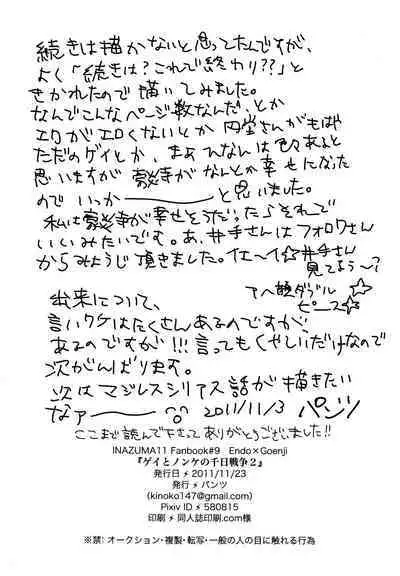 続きは描かないと思ってたんですが、
よく「続きは？これで終わり??」と
きかれたので描いてみました。
なんでこんなページ数なんだ、とか
エロがエロくないとか 円堂さんがもはや
ただのゲイとか、まぁひなんは色々あると
思いますが 豪炎寺がなんとか幸せになった
のでいっかーーと思いました。
私は豪炎寺が幸せそうだったらそれで
いいみたいです。あ、井手さんはフォロワさん
からみょうじ頂きました。イエーイ☆井手さん
見てるぅ〜？
アヘ顔ダブル
ピース☆
出来について、
言いワケはたくさんあるのですが、
あるのですが!!!言ってもくやしいだけなので
次がんばります。
次はマジレスシリアス話が描きたい
なァーー 2011/11/3 パンツ
ここまで読んで下さって ありがとうございました!!
INAZUMA11 Fanbook#9 Endo×Goenji
『ゲイとノンケの千日戦争２』
発行日⚡2011/11/23
発行⚡パンツ
(kinoko147@gmail.com)
Pixiv ID⚡580815
印刷⚡同人誌印刷.com様
※禁: オークション・複製・転写・一般の人の目に触れる行為